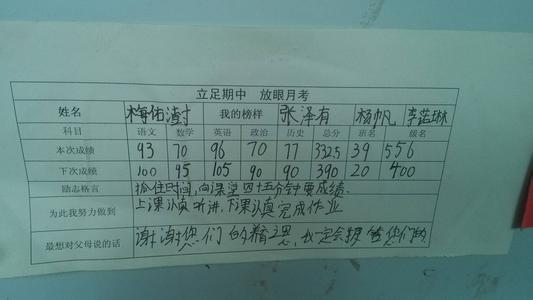 立足期中 放眼月考
姓名 梅佑澍 我的榜样 张泽有 杨帆 李蕊琳
科目 语文 数学 英语 政治 历史 总分 班名 级名
本次成绩 93 70 96 70 77 332.5 39 556
下次成绩 100 95 105 90 90 390 20 400
励志格言 抓住时间,向课堂四十五分钟要成绩.
为此我努力做到 上课认真听讲,下课认真完成作业
最想对父母说的话 谢谢您们的 我一定会 您们的